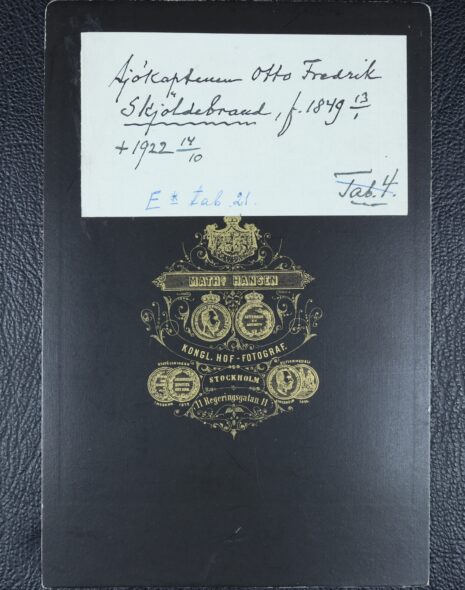 Sjökaptenen Otto Fredrik
Skjöldebrand, f. 1849 13/1
+ 1922 14/10
Tab. 4.
E* tab 21.
MATHS HANSEN
KONGL. HOF-FOTOGRAF.
STOCKHOLM
11 Regeringsgatan 11